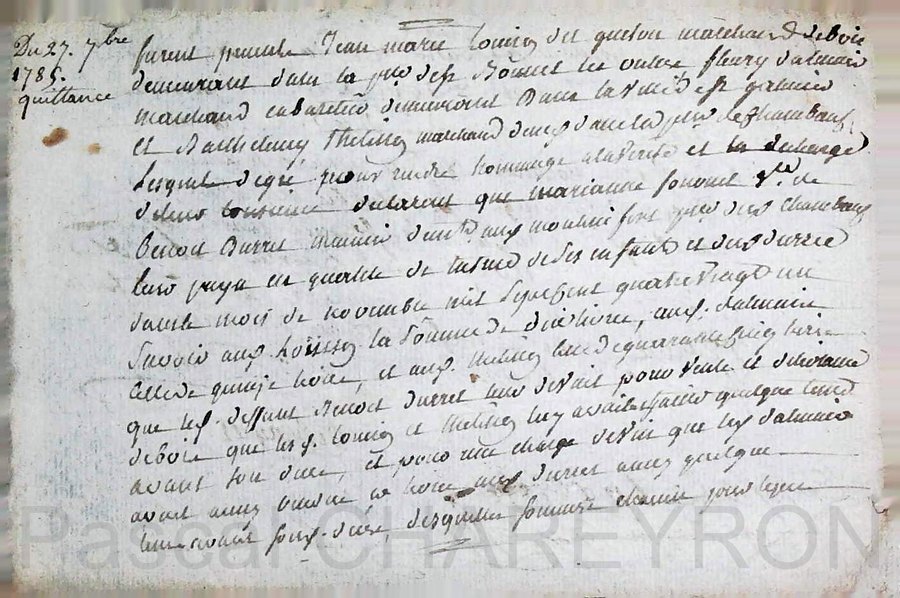 Du 27. 7bre
1785.
quittance
furent presents Jean marie dit marchand de bois
demeurant dans la psse de st Bonnet les oules fleury dalmais
marchand cabaretier demeurant dans la ville de st galmier
et Barthelemy Thelisson marchand demeurt dans la psse de chambœuf
lesquels de gré pour rendre hommage a la verité et la decharge
de leur conscience declarent que marianne ve de
Benoit Durret munier demt aux moulins psse dud chambœuf
leur paya en qualité de tutrice de ses enfants et dud durret
dans le mois de novembre mil sept cent quatre vingt un
Savoir aud. la somme de dix livres, aud. dalmais
celle de quinze livres, et aud. thelisson celle de quarante cinq livres
que led. deffunt Benoit durret leur devait pour vente et delivrance
de bois que les s. et thelisson luy avaient faite quelque tems
avant son deces, et pour une charge de vin que led dalmais
avait aussi vendue et livrée aud. durret aussi quelque
tems avant son. deces, desquelles sommes chacun pour ce qui
Pascal CHAREYRON